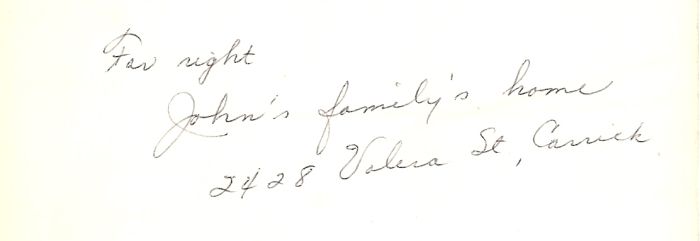 Far right
John's family's home
2428 Valera St, Carrick